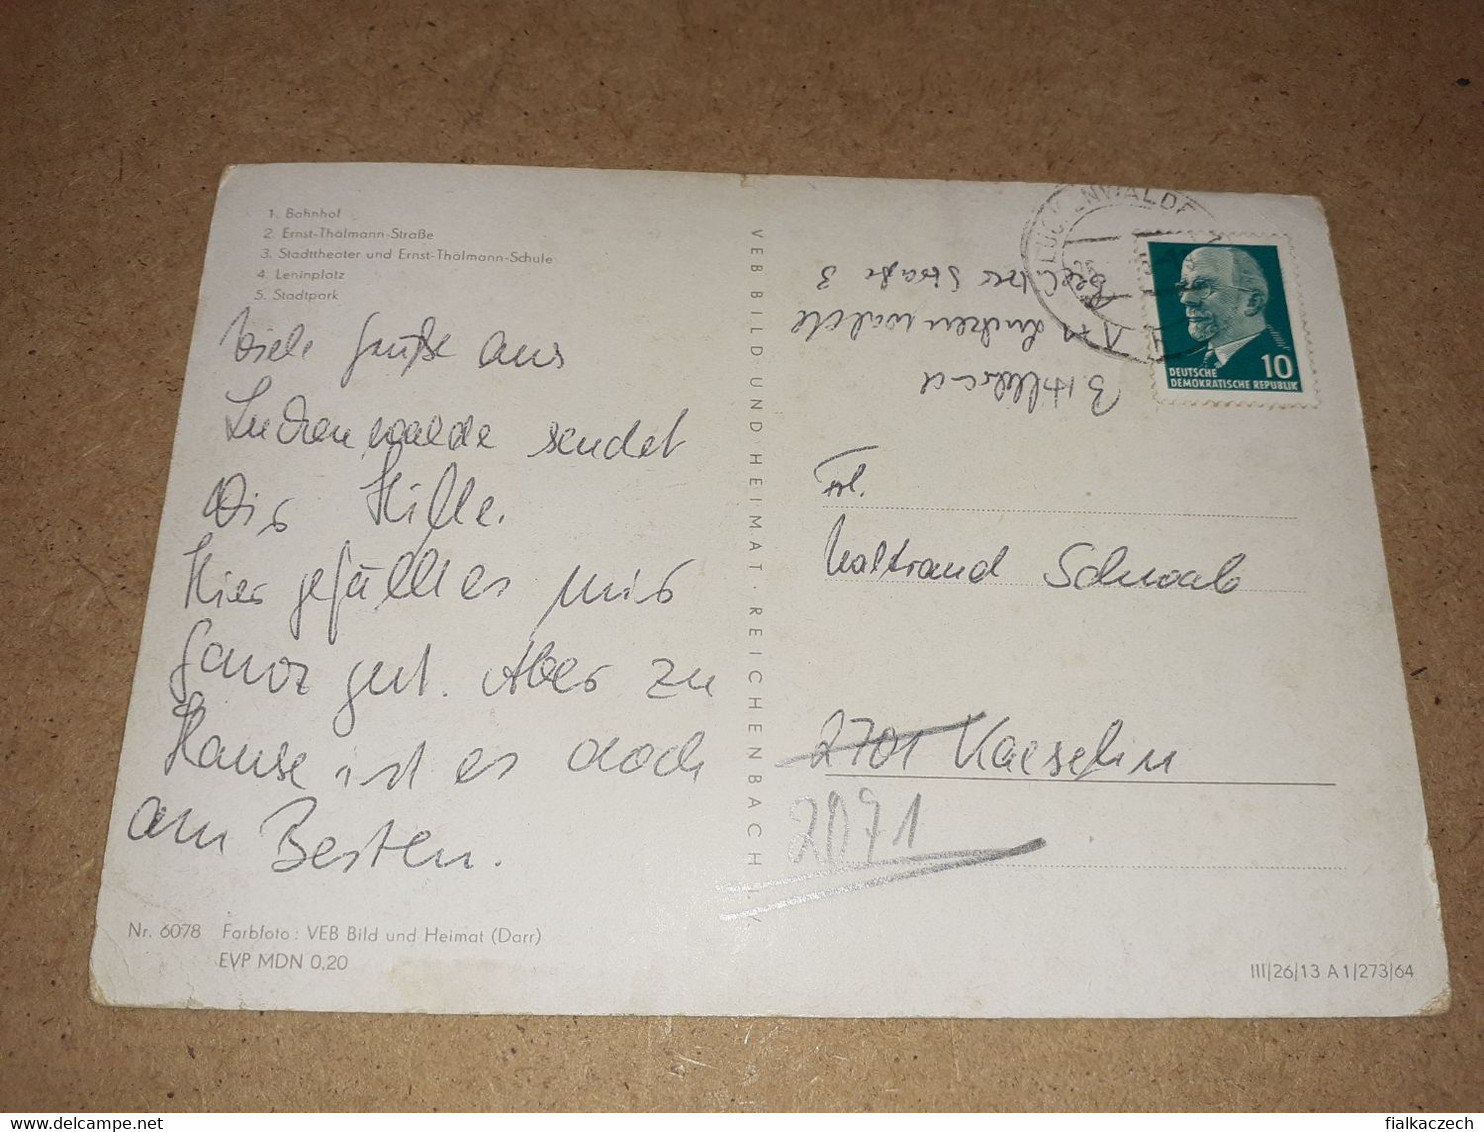 1. Bahnhof
2. Ernst-Thälmann-Straße
3. Stadttheater und Ernst-Thälmann-Schule
4. Leninplatz
5. Stadtpark
Viele Grüße aus
Luckenwalde sendet
Dir Hille.
Hier gefällt es mir
ganz gut. Aber zu
Hause ist es doch
am Besten.
Nr. 6078 Farbfoto: VEB Bild und Heimat (Darr)
EVP MDN 0,20
VEB BILD UND HEIMAT · REICHENBACH i. V.
Luckenwalde
Straße 3
LUCKENWALDE
DEUTSCHE
DEMOKRATISCHE REPUBLIK
10
Frl.
Waltrand Schwab
2701 Kaeselin
2071
III/26/13 A 1/273/64
fialkaczech